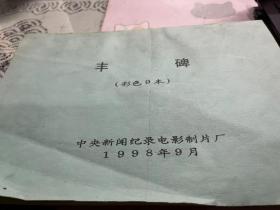 丰 碑
(彩色9本)
中央新闻纪录电影制片厂
1998年9月